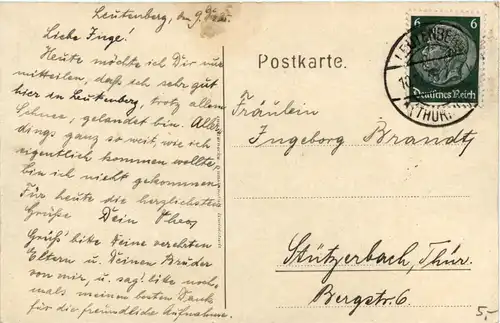 Leutenberg, den 9. Dez.
Liebe Inge!
Heute möchte ich Dir nur
mitteilen, daß ich sehr gut
hier in Leutenberg, trotz allem
Schnee, gelandet bin. Aller-
dings ganz so weit, wie ich
eigentlich kommen wollte
bin ich nicht gekommen.
Für heute die herzlichsten
Grüße Dein Theo
Grüß' bitte Deine verehrten
Eltern u. Deinen Bruder
von mir, u. sag' bitte noch-
mals meinen besten Dank
für die freundliche Aufnahme.
Postkarte.
6 6
Deutsches Reich
LEUTENBERG
(THÜR.)
Fräulein
Ingeborg Brandt
Stützerbach, Thür.
Bergstr. 6.
5,-